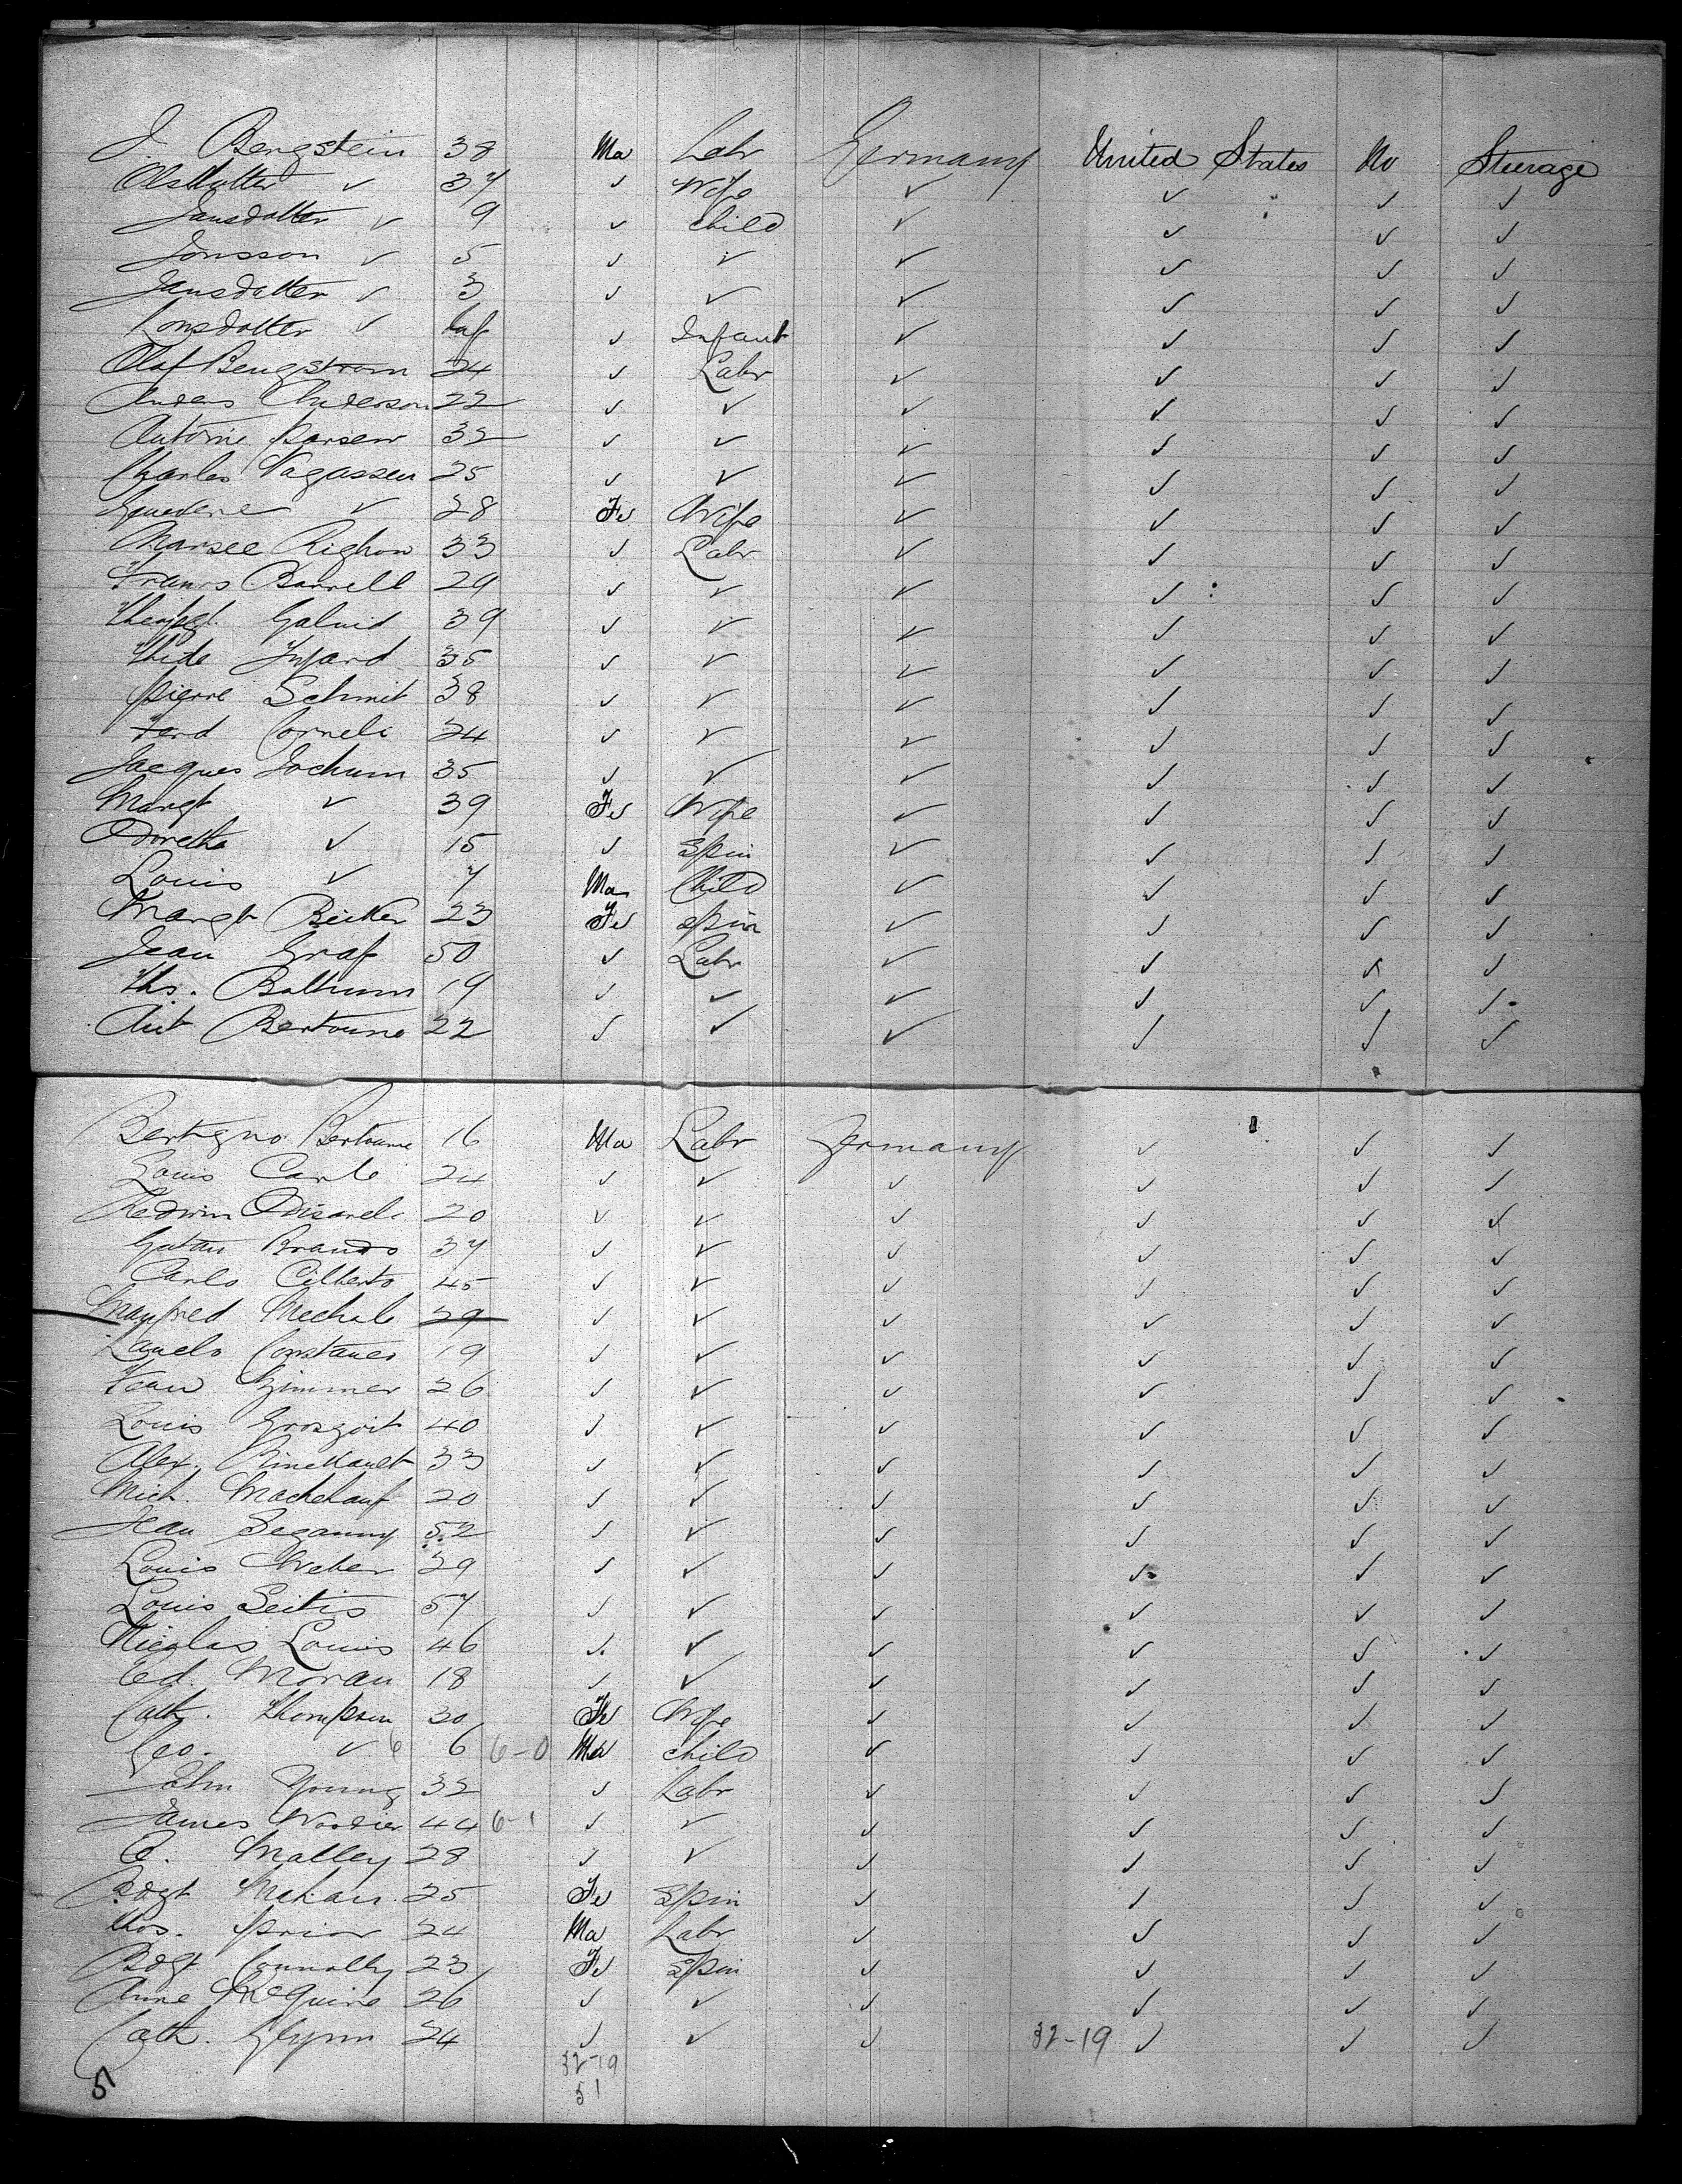 J. Bergstein 38 Ma Labr Germany United States No Steerage
Olsdotter ✓ 37 ✓ Wife ✓ ✓ ✓ ✓
Jansdotter ✓ 9 ✓ child ✓ ✓ ✓ ✓
Jonsson ✓ 5 ✓ ✓ ✓ ✓ ✓ ✓
Jansdotter ✓ 3 ✓ ✓ ✓ ✓ ✓ ✓
Lonsdotter ✓ Inf ✓ Infant ✓ ✓ ✓ ✓
Olaf Bengstrom 24 ✓ Labr ✓ ✓ ✓ ✓
Anders Anderson 22 ✓ ✓ ✓ ✓ ✓ ✓
Antoine Parsen 32 ✓ ✓ ✓ ✓ ✓ ✓
Charles Vagassen 25 ✓ ✓ ✓ ✓ ✓ ✓
✓ 28 Fe Wife ✓ ✓ ✓ ✓
Righon 33 ✓ Labr ✓ ✓ ✓ ✓
Francs Barrell 29 ✓ ✓ ✓ ✓ ✓ ✓
Galnid 39 ✓ ✓ ✓ ✓ ✓ ✓
35 ✓ ✓ ✓ ✓ ✓ ✓
Pierre Schmit 38 ✓ ✓ ✓ ✓ ✓ ✓
Ferd Corneli 24 ✓ ✓ ✓ ✓ ✓ ✓
Jacques Jochum 35 ✓ ✓ ✓ ✓ ✓ ✓
Margt ✓ 39 Fe Wife ✓ ✓ ✓ ✓
Doretha ✓ 15 ✓ Spin ✓ ✓ ✓ ✓
Louis ✓ 7 Ma Child ✓ ✓ ✓ ✓
Margt Becker 23 Fe Spin ✓ ✓ ✓ ✓
Jean Graf 50 ✓ Labr ✓ ✓ ✓ ✓
Ths. Balthum 19 ✓ ✓ ✓ ✓ ✓ ✓
Ant Bertoune 22 ✓ ✓ ✓ ✓ ✓ ✓
Bertoune 16 Ma Labr Germany ✓ ✓ ✓
Louis Carle 24 ✓ ✓ ✓ ✓ ✓ ✓
20 ✓ ✓ ✓ ✓ ✓ ✓
Brands 37 ✓ ✓ ✓ ✓ ✓ ✓
Carlo Cilberto 45 ✓ ✓ ✓ ✓ ✓ ✓
Manfred Mechale 29 ✓ ✓ ✓ ✓ ✓ ✓
19 ✓ ✓ ✓ ✓ ✓ ✓
Zimmer 26 ✓ ✓ ✓ ✓ ✓ ✓
Louis 40 ✓ ✓ ✓ ✓ ✓ ✓
Alex. 33 ✓ ✓ ✓ ✓ ✓ ✓
Mich. 20 ✓ ✓ ✓ ✓ ✓ ✓
Jean 52 ✓ ✓ ✓ ✓ ✓ ✓
Louis Weber 29 ✓ ✓ ✓ ✓ ✓ ✓
Louis Seitis 57 ✓ ✓ ✓ ✓ ✓ ✓
Nicolas Louis 46 ✓ ✓ ✓ ✓ ✓ ✓
Ed. Moran 18 ✓ ✓ ✓ ✓ ✓ ✓
Cath. Thompson 30 Fe Wife ✓ ✓ ✓ ✓
Geo. ✓ 6 6 6-0 Ma child ✓ ✓ ✓ ✓
John Young 32 ✓ Labr ✓ ✓ ✓ ✓
James 44 6-1 ✓ ✓ ✓ ✓ ✓ ✓
C. Malley 28 ✓ ✓ ✓ ✓ ✓ ✓
Bdgt Mahan 25 Fe Spin ✓ ✓ ✓ ✓
Thos. Prior 24 Ma Labr ✓ ✓ ✓ ✓
Bdgt Connolly 23 Fe Spin ✓ ✓ ✓ ✓
Anne McGuire 26 ✓ ✓ ✓ ✓ ✓ ✓
Cath. Glynn 24 ✓ ✓ ✓ 32-19 ✓ ✓ ✓
32-19
51
51